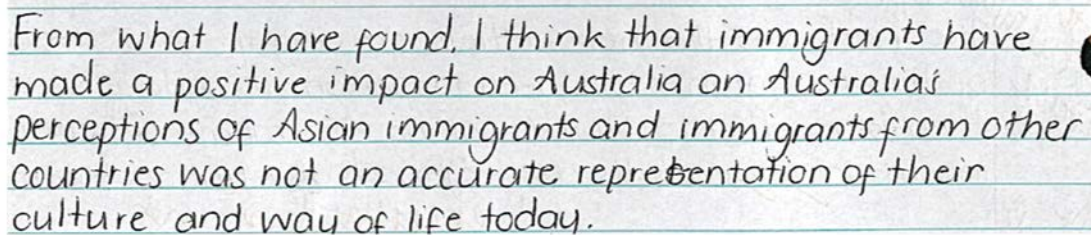 From what I have found, I think that immigrants have
made a positive impact on Australia an Australia's
perceptions of Asian immigrants and immigrants from other
countries was not an accurate representation of their
culture and way of life today.